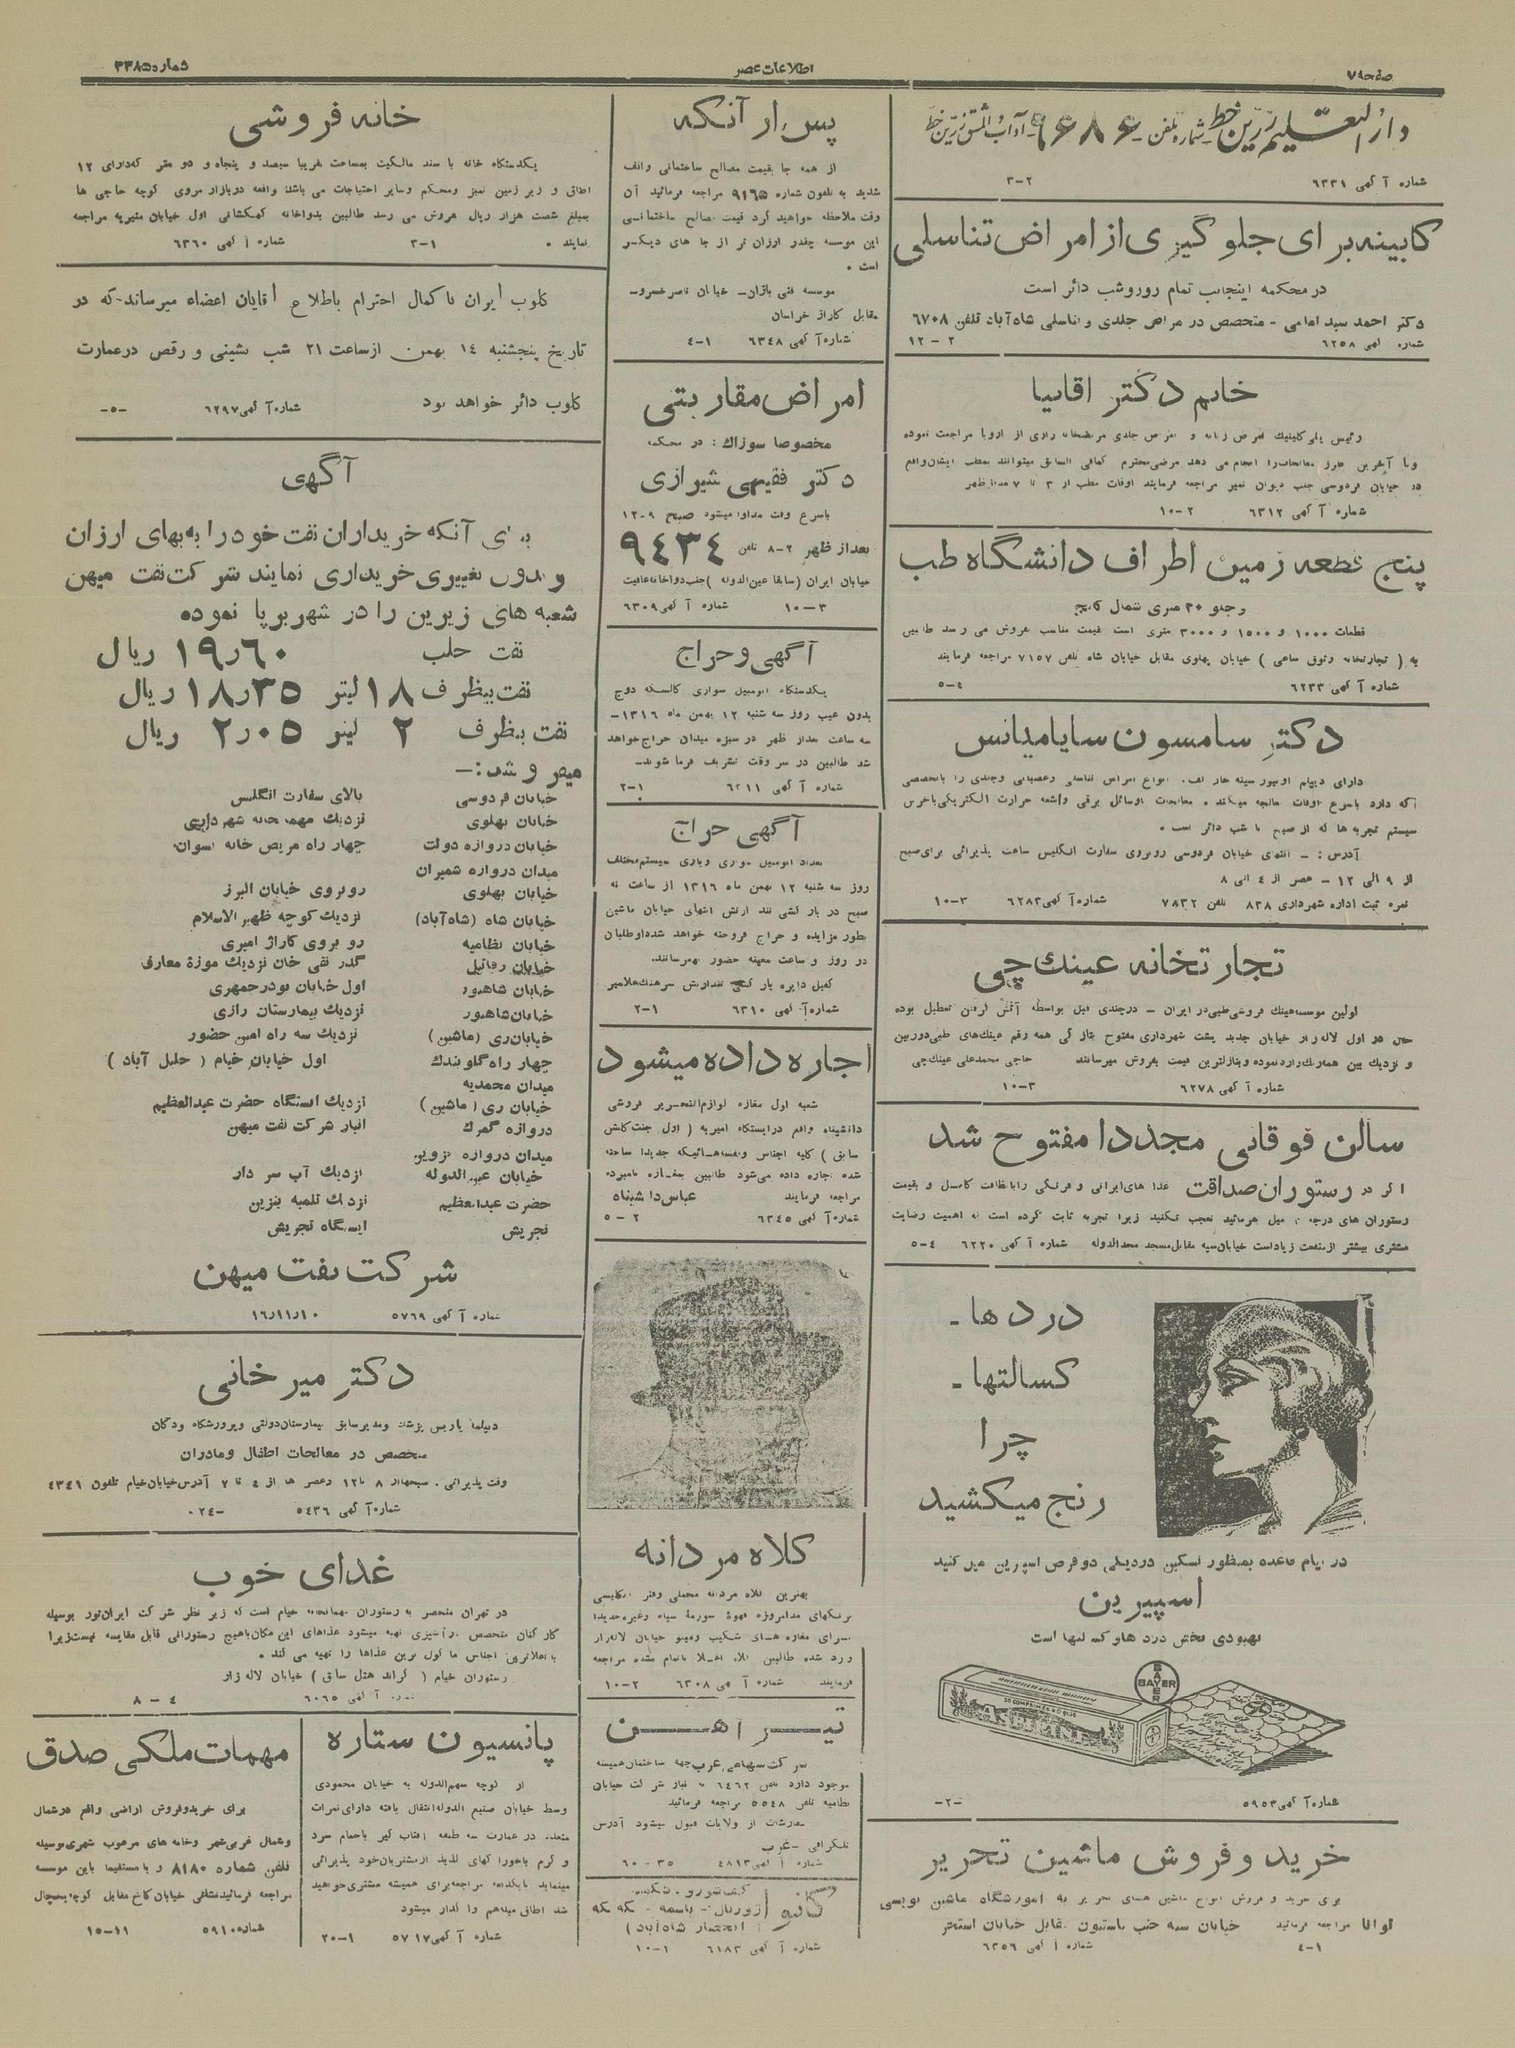 صفحه ۷
اطلاعات عصر
شماره ۳۳۸۵
دار التعلیم زرین خط - شماره تلفن - ۹۶۸۶ - آداب المشق زرین خط
شماره آگهی ۶۳۳۱ ۲-۳
کابینه برای جلوگیری از امراض تناسلی
در محکمه اینجانب تمام روز و شب دائر است
دکتر احمد سید امامی - متخصص در مراض جلدی و تناسلی شاه‌آباد تلفن ۶۷۰۸
شماره آگهی ۶۲۵۸ ۲ - ۱۲
خانم دکتر اقابیا
رئیس پلی‌کلینیک امراض زنانه و امراض جلدی مریضخانه رازی از اروپا مراجعت نموده
وبا آخرین طرز معالجات را انجام می دهد مرضی محترم کمافی السابق میتوانند بمطب ایشان واقع
در خیابان فردوسی جنب دیوان تمیز مراجعه فرمایند اوقات مطب از ۳ تا ۷ بعد از ظهر
شماره آگهی ۶۳۱۲ ۲-۱۰
پنج قطعه زمین اطراف دانشگاه طب
و جلو ۳۰ متری شمال کالج
قطعات ۱۰۰۰ و ۱۵۰۰ و ۳۰۰۰ متری است قیمت مناسب بفروش می رسد طالبین
به ( تجارتخانه وثوق ساعی ) خیابان پهلوی مقابل خیابان شاه تلفن ۷۱۵۷ مراجعه فرمایند
شماره آگهی ۶۲۳۳ ۴-۵
دکتر سامسون سایامیانس
دارای دیپلم
که دارد باسرع اوقات معالجه میکند . معالجات اوسائل برقی و اشعه حرارت الکتریکی باخرین
سیستم تجربه ها که از صبح تا شب دائر است .
آدرس : - انتهای خیابان فردوسی روبروی سفارت انگلیس ساعت پذیرائی برای صبح
از ۹ الی ۱۲ - عصر از ۴ الی ۸
نمره ثبت اداره شهرداری ۸۳۸ تلفن ۷۸۳۲ شماره آگهی ۶۲۸۳ ۳-۱۰
تجارتخانه عینک چی
اولین موسسه عینک فروشی طبی در ایران - در چندی قبل بواسطه آتش گرفتن تعطیل بوده
در اول لاله‌زار خیابان جدید پشت شهرداری مفتوح همه رقم عینک‌های طبی دوربین
و نزدیک بین وارد نموده و بنازلترین قیمت بفروش میرسانند حاجی محمدعلی عینک چی
شماره آگهی ۶۲۷۸ ۳-۱۰
سالن فوقانی مجددا مفتوح شد
اگر در رستوران صداقت غذا های ایرانی و فرنگی را با نظافت کامل و بقیمت
رستوران های درجه میل فرمائید تعجب نکنید زیرا تجربه ثابت کرده است که اهمیت رضایت
مشتری بیشتر از منفعت زیاد است خیابان سپه مقابل مسجد مجدالدوله شماره آگهی ۶۲۲۰ ۴-۵
درد ها -
کسالتها -
چرا
رنج میکشید
در ایام قاعده بمنظور تسکین درد یکی دو قرص اسپرین میل کنید
اسپیرین
بهبودی بخش درد ها و کسالتها است
BAYER
BAYER
ASPIRIN
شماره آگهی ۵۹۵۳ -۲-
خرید و فروش ماشین تحریر
برای خرید و فروش انواع ماشین های تحریر به آموزشگاه ماشین نویسی
توانا مراجعه فرمائید خیابان سپه جنب پاستیون مقابل خیابان استخر
شماره آگهی ۶۳۵۶ ۱-۴
پس از آنکه
از همه جا بقیمت مصالح ساختمانی واقف
شدید به تلفون شماره ۹۱۶۵ مراجعه فرمائید آن
وقت ملاحظه خواهید کرد قیمت مصالح ساختمانی
این موسسه چقدر ارزان تر از جا های دیگر
است .
موسسه فنی یاژان - خیابان ناصر خسرو -
مقابل کاراژ خراسان
شماره آگهی ۶۳۴۸ ۱-۴
امراض مقاربتی
مخصوصا سوزاک : در محکمه
دکتر فقیهی شیرازی
باسرع وقت مداوا میشود صبح ۹-۱۲
بعداز ظهر ۲-۸ تلفن ۹۴۳۴
خیابان ایران (سابقا عین‌الدوله) جنب دواخانه عافیت
شماره آگهی ۶۳۰۹ ۳-۱۰
آگهی و حراج
یکدستگاه اتومبیل سواری کالسکه دوج
بدون عیب روز سه شنبه ۱۲ بهمن ماه ۱۳۱۶ -
سه ساعت بعداز ظهر در سبزه میدان حراج خواهد
شد طالبین در سر وقت تشریف فرما شوند -
شماره آگهی ۶۳۱۱ ۱-۲
آگهی حراج
تعداد اتومبیل سواری و باری سیستم مختلف
روز سه شنبه ۱۲ بهمن ماه ۱۳۱۶ از ساعت نه
صبح در بارکشی تند ارتش انتهای خیابان ماشین
بطور مزایده و حراج فروخته خواهد شد داوطلبان
در روز و ساعت معینه حضور بهم رسانند.
کفیل دایره بار کشی تندارتش سرهنگ غلامیر
شماره آگهی ۶۳۱۰ ۱-۲
اجاره داده میشود
شعبه اول مغازه لوازم‌التحریر فروشی
دانشپناه واقع در ایستگاه امیریه ( اول جنت کاشن
سابق ) کلیه اجناس و قفسه‌هائیکه جدیدا ساخته
شده اجاره داده می‌شود طالبین بمغازه نامبرده
مراجعه فرمایند عباس دانشپناه
شماره آگهی ۶۳۴۵ ۲-۵
کلاه مردانه
بهترین کلاه مردانه مخملی وفتر انگلیسی
برنگهای مد امروزه قهوه سورمه سیاه وغیره جدیدا
برای مغازه های شکیب ومینو خیابان لاله‌زار
وارد شده طالبین مراجعه
فرمایند شماره آگهی ۶۳۰۸ ۲-۱۰
تیر آهن
شرکت سهامی غرب همه ساختمان همیشه
موجود دارد تلفن ۶۴۶۲ انبار شرکت خیابان
نظامیه تلفن ۵۵۴۸ مراجعه فرمائید
سفارشات از ولایات قبول میشود آدرس
تلگرافی - غرب
شماره آگهی ۴۸۱۳ ۳۵-۶۰
شماره آگهی ۶۱۸۳ ۱-۱۰
خانه فروشی
یکدستگاه خانه با سند مالکیت بمساحت تقریبا سیصد و پنجاه و دو متر که دارای ۱۲
اطاق و زیر زمین تمیز ومحکم وسایر احتیاجات می باشد واقعه در بازار مروی کوچه حاجی ها
بمبلغ شصت هزار ریال فروش می رسد طالبین بدواخانه کهکشانی اول خیابان منیریه مراجعه
نمایند . ۱-۳ شماره آگهی ۶۳۶۰
کلوب ایران با کمال احترام باطلاع آقایان اعضاء میرساند که در
تاریخ پنجشنبه ۱۴ بهمن از ساعت ۲۱ شب نشینی و رقص در عمارت
کلوب دائر خواهد بود شماره آگهی ۶۲۹۷ -۵-
آگهی
برای آنکه خریداران نفت خود را به بهای ارزان
وبدون تغییری خریداری نمایند شرکت نفت میهن
شعبه های زیرین را در شهر برپا نموده
نفت حلب ۱۹٫۶۰ ریال
نفت بیظرف ۱۸ لیتر ۱۸٫۳۵ ریال
نفت بیظرف ۲ لیتر ۲٫۰۵ ریال
میفروشد :-
خیابان فردوسی بالای سفارت انگلیس
خیابان پهلوی نزدیک مهمانخانه شهرداری
خیابان دروازه دولت چهار راه مریض خانه نسوان
میدان دروازه شمیران
خیابان پهلوی روبروی خیابان البرز
خیابان شاه (شاه‌آباد) نزدیک کوچه ظهیرالاسلام
خیابان نظامیه رو بروی کاراژ امیری
خیابان رفائیل گذر نقی خان نزدیک موزه معارف
خیابان شاهپور اول خیابان بوذرجمهری
خیابان شاهپور نزدیک بیمارستان رازی
خیابان ری (ماشین) نزدیک سه راه امین حضور
چهار راه گلوبندک اول خیابان خیام ( جلیل آباد )
میدان محمدیه
خیابان ری (ماشین) نزدیک ایستگاه حضرت عبدالعظیم
دروازه گمرک انبار شرکت نفت میهن
میدان دروازه قزوین
خیابان عین‌الدوله نزدیک آب سردار
حضرت عبدالعظیم نزدیک تلمبه بنزین
تجریش ایستگاه تجریش
شرکت نفت میهن
شماره آگهی ۵۷۶۹ ۱۶٫۱۱٫۱۰
دکتر میرخانی
دیپلمه پاریس پزشک ومدیر سابق بیمارستان دولتی وپرورشگاه کودکان
متخصص در معالجات اطفال ومادران
وقت پذیرائی . صبحها از ۸ تا ۱۲ وعصر ها از ۴ تا ۷ آدرس خیابان خیام تلفون ۴۳۴۱
شماره آگهی ۵۴۳۶ -۲۴۰
غذای خوب
در تهران منحصر به رستوران مهمانخانه خیام است که زیر نظر شرکت ایران‌تور بوسیله
کارکنان متخصص در آشپزی تهیه میشود غذاهای این مکان باهیچ رستورانی قابل مقایسه نیست زیرا
با عالیترین اجناس ماکول ترین غذاها را تهیه می کند .
رستوران خیام ( گراند هتل سابق ) خیابان لاله زار
شماره آگهی ۶۰۶۵ ۴ - ۸
پانسیون ستاره
از کوچه سهم‌الدوله به خیابان محمودی
وسط خیابان صنیع الدوله انتقال یافته دارای نمرات
متعدد در عمارت سه طبقه آفتاب گیر باحمام سرد
و گرم باخوراکهای لذیذ از مشتریان خود پذیرائی
مینماید بایکدفعه مراجعه برای همیشه مشتری خواهید
شد اطاق میله هم واگذار میشود
شماره آگهی ۵۷۱۷ ۱-۲۰
مهمات ملکی صدق
برای خرید وفروش اراضی واقع در شمال
وشمال غربی شهر وخانه های مرغوب شهری بوسیله
تلفن شماره ۸۱۸۰ و یا مستقیما باین موسسه
مراجعه فرمائید نشانی خیابان کاخ مقابل کوچه یخچال
شماره ۵۹۱۰ ۱۱-۱۵